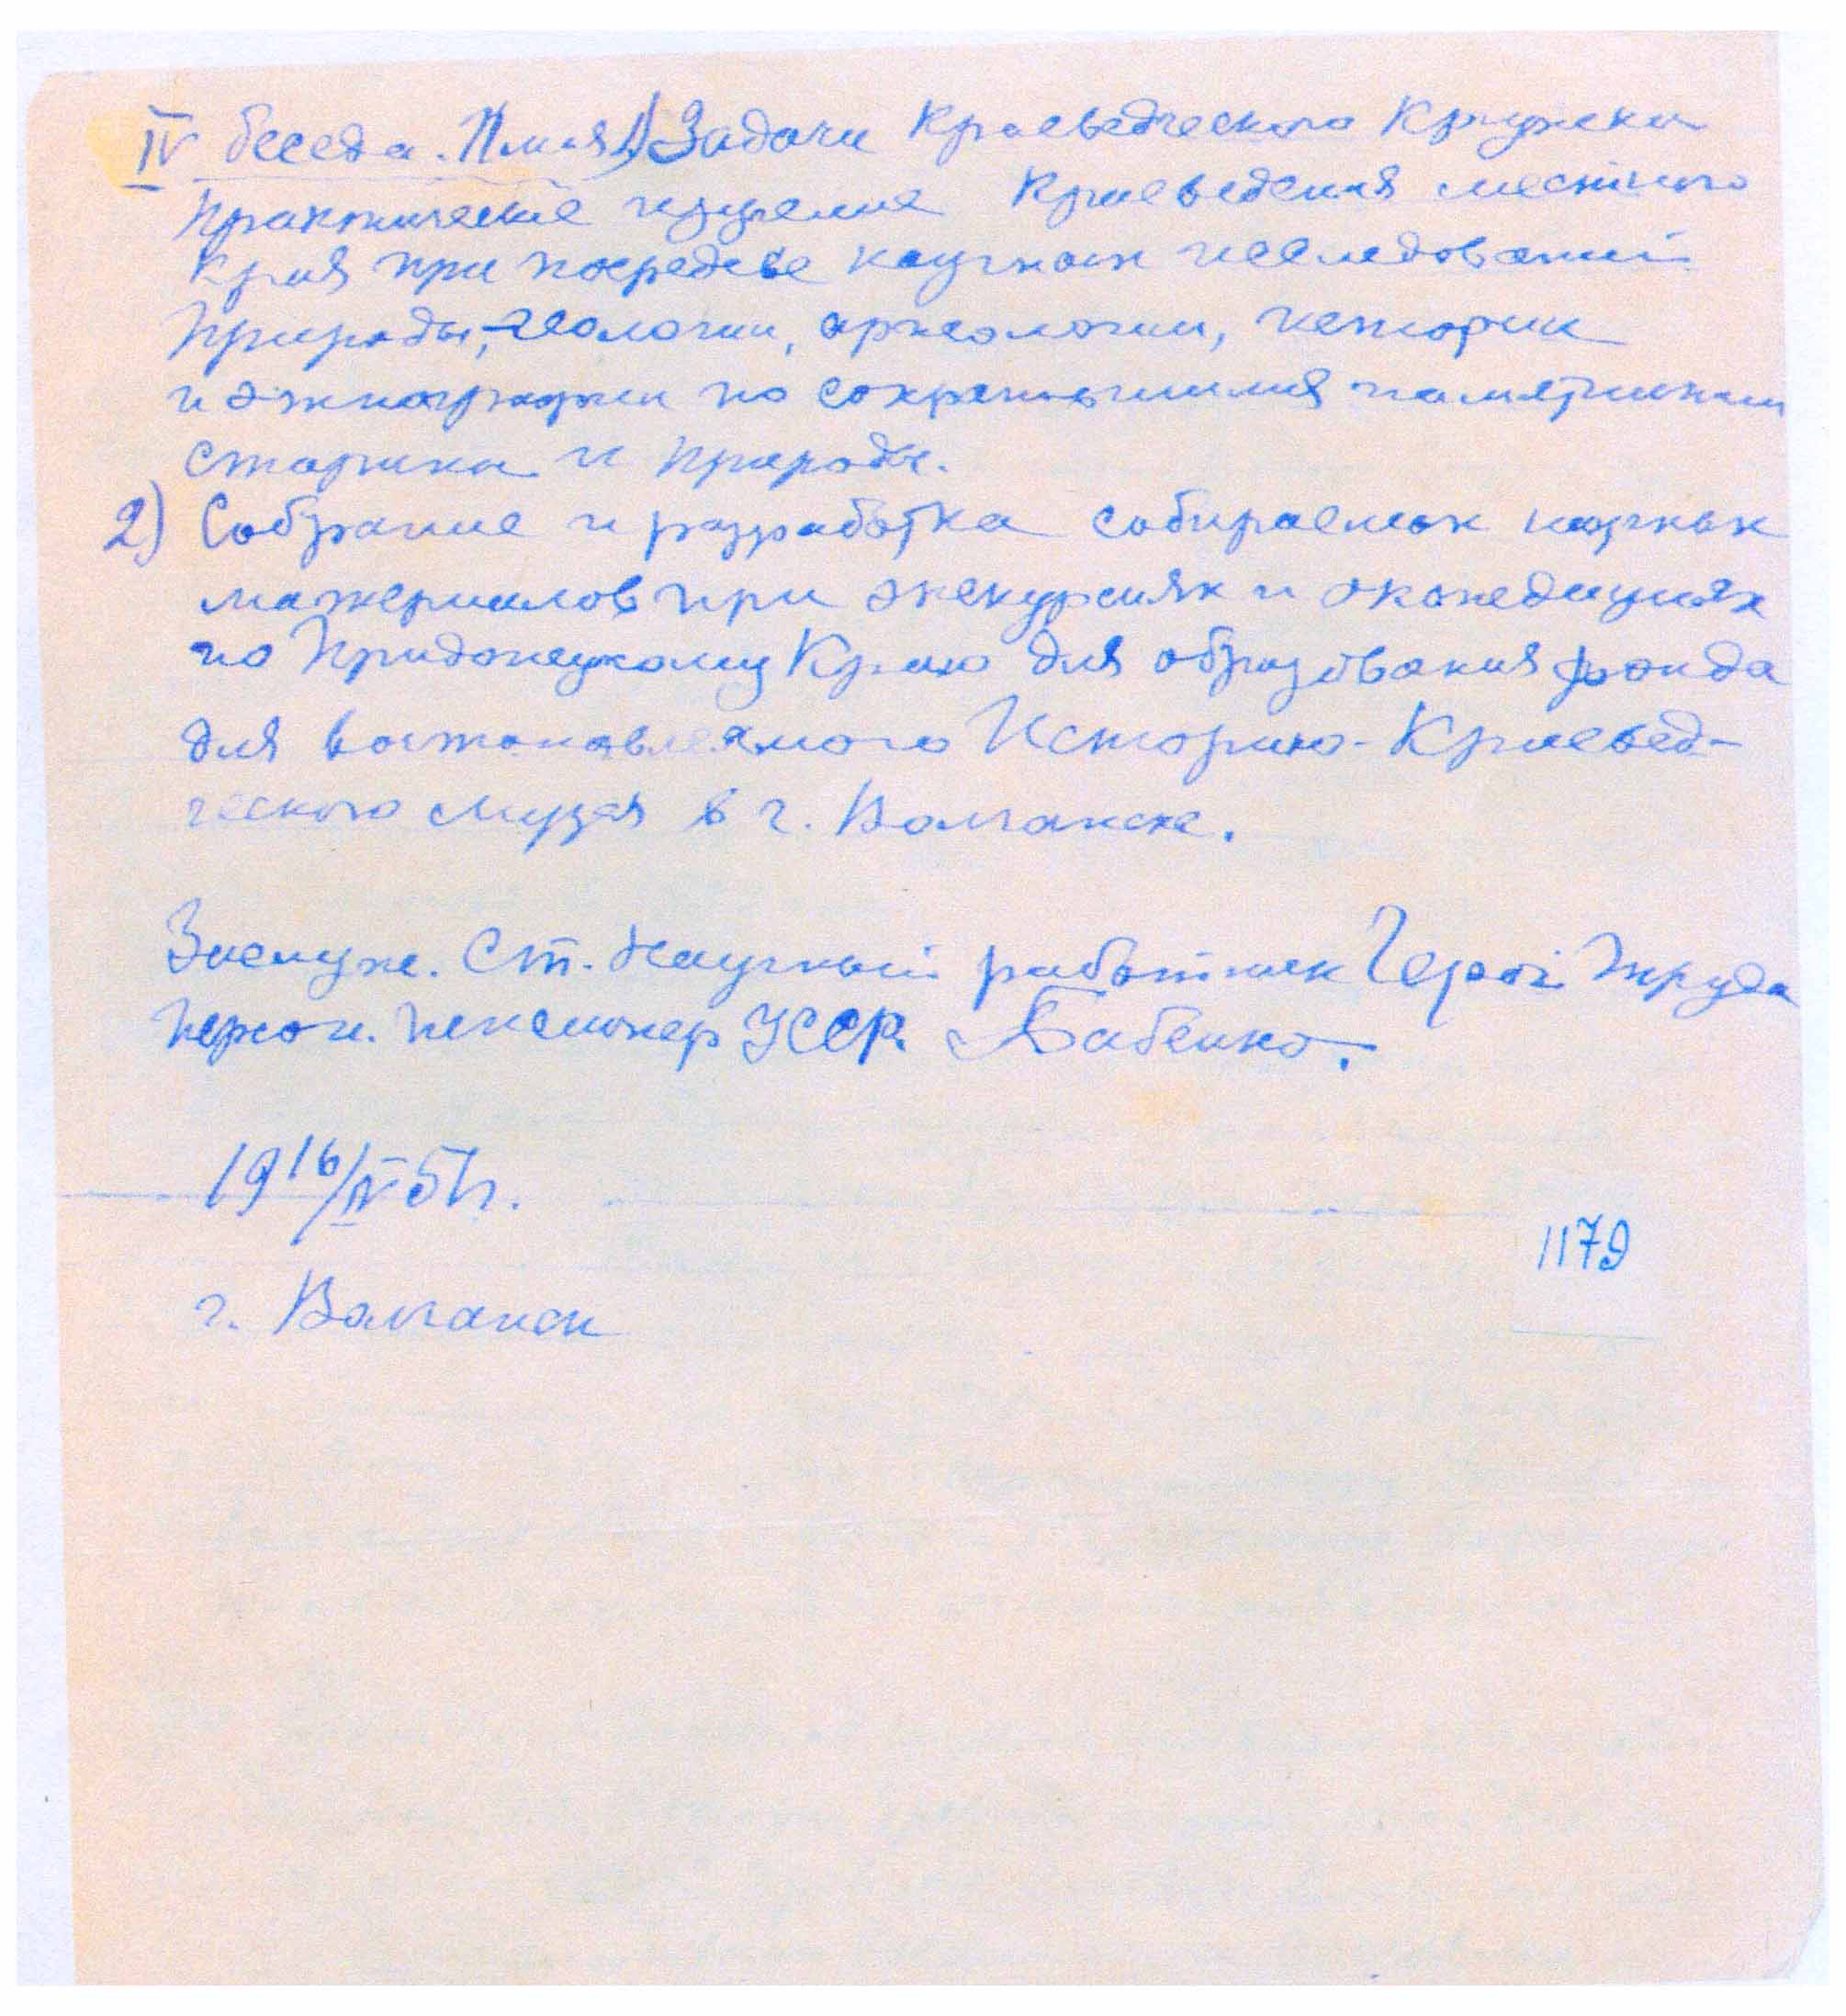 IV беседа. 11 мая 1) Задачи Краеведческого Кружка
Практическое изучение Краеведения местного
Края при посредсве научных исследований
Природы, геологии, археологии, истории
и этнографии по сохранившимся памятникам
старины и природы.
2) Собрание и разработка собираемых научных
материалов при экскурсиях и экспедициях
по Придонецкому Краю для образования фонда
для востонавляемого Историко-Краевед-
ческого музея в г. Волчанске.
Заслуж. Ст. Научный работник Герой Труда
персон. пенсионер УССР. Бабенко.
19 16/IV 51 г.
1179
г. Волчанск